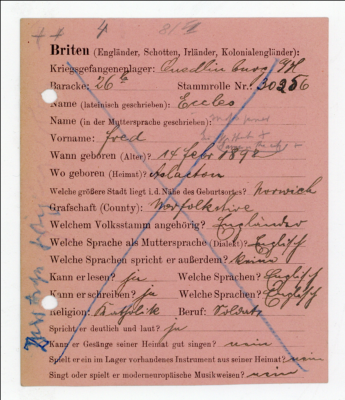 4
Briten (Engländer, Schotten, Irländer, Kolonialengländer):
Kriegsgefangenenlager: Quedlinburg
Baracke: 26a Stammrolle Nr.: 30256
Name (lateinisch geschrieben): Eccles
Name (in der Muttersprache geschrieben):
Vorname: fred
Wann geboren (Alter)? 14 febr 1892
Wo geboren (Heimat)? Aslacton
Welche größere Stadt liegt i. d. Nähe des Geburtsortes? Norwich
Grafschaft (County): Norfolkshire
Welchem Volksstamm angehörig? Engländer
Welche Sprache als Muttersprache (Dialekt)? Englisch
Welche Sprachen spricht er außerdem? Keine
Kann er lesen? ja Welche Sprachen? Englisch
Kann er schreiben? ja Welche Sprachen? Englisch
Religion: Katholik Beruf: Soldat
Spricht er deutlich und laut? ja
Kann er Gesänge seiner Heimat gut singen? nein
Spielt er ein im Lager vorhandenes Instrument aus seiner Heimat? nein
Singt oder spielt er moderneuropäische Musikweisen? nein